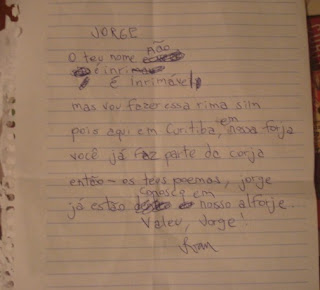 JORGE
O teu nome não
é inrima
É inrimável
mas vou fazer essa rima sim
pois aqui em Curitiba, em nossa forja
você já faz parte da corja
então — os teus poemas, jorge
já estão conosco em nosso alforje...
Valeu, Jorge!